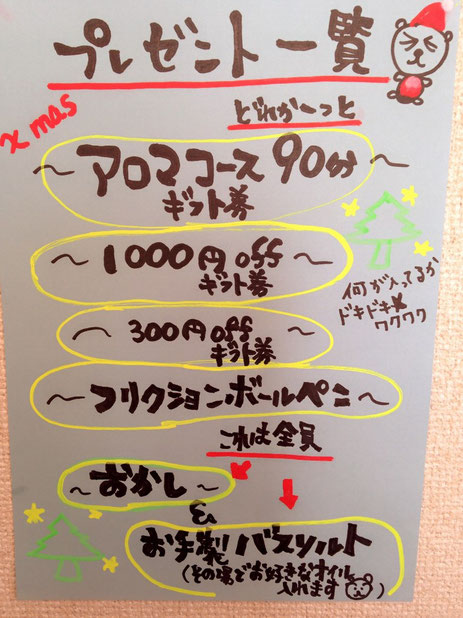 プレゼント一覧
xmas
どれか一つと
～アロマコース 90分～
ギフト券
～1000円off～
ギフト券
何が入ってるか
ドキドキ
ワクワク
～300円off～
ギフト券
～フリクションボールペン～
これは全員
～おかし～
&
お手製バスソルト
(その場でお好きなオイル
入れます)